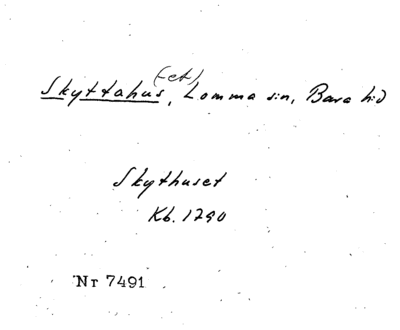 (-et)
Skyttahus, Lomma sn, Bara hd
Skythuset
Kb. 1790
Nr 7491